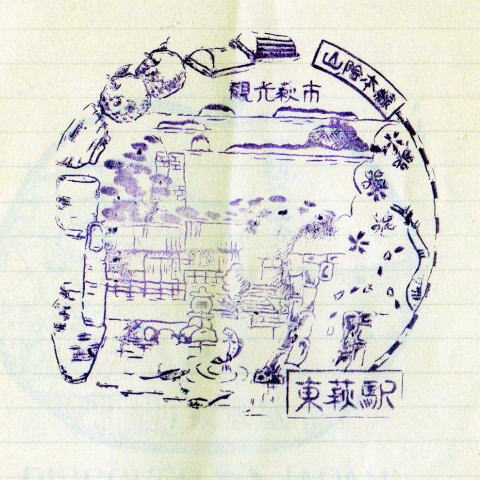 山陰本線
観光萩市
東萩駅